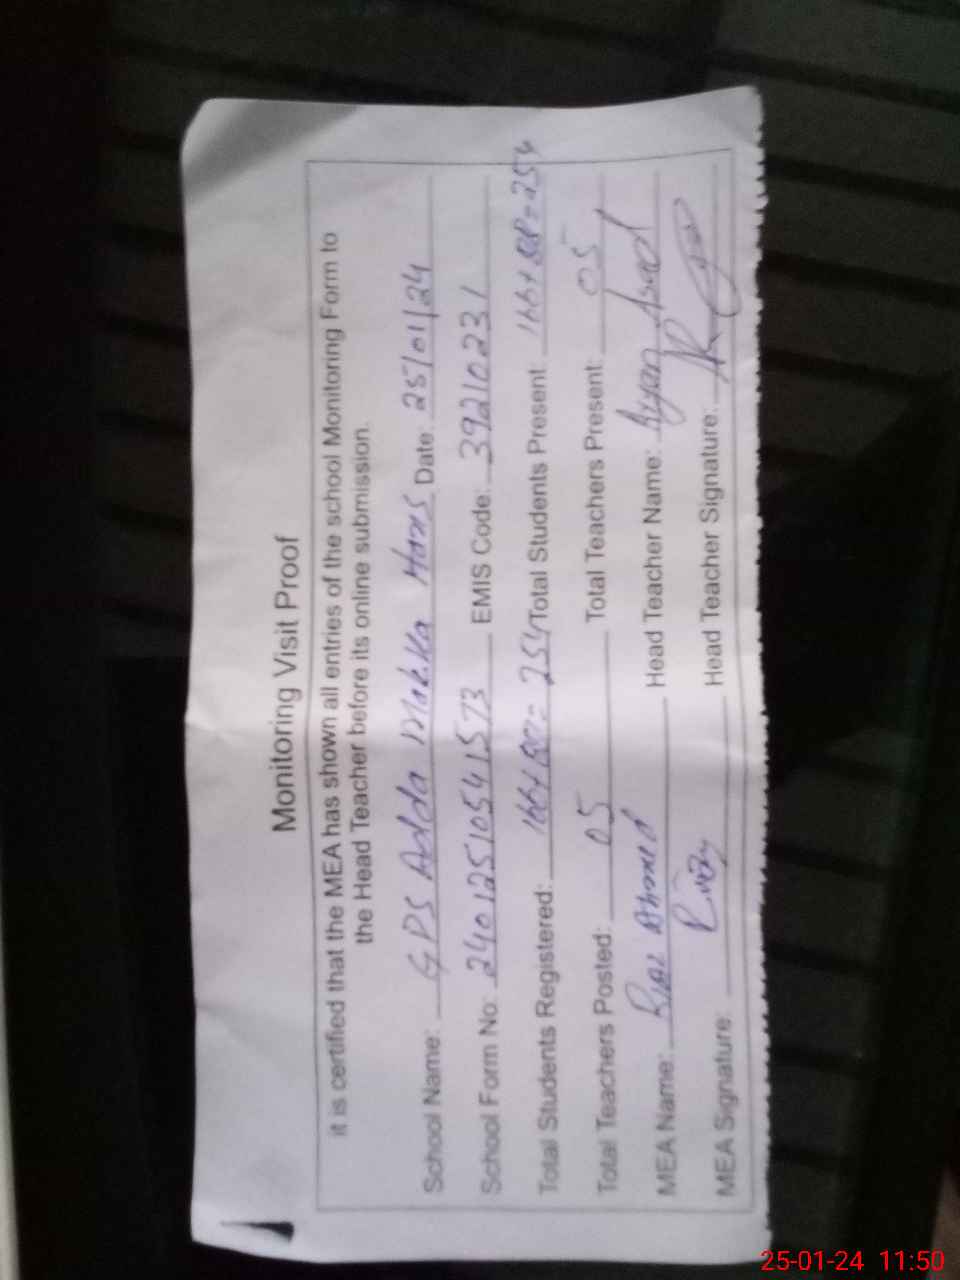 Monitoring Visit Proof
it is certified that the MEA has shown all entries of the school Monitoring Form to
the Head Teacher before its online submission.
School Name: GPS Adda Makka Hans Date: 25/01/24
School Form No: 2401251054 1573 EMIS Code: 39210231
Total Students Registered: 166+88= 254 Total Students Present: 166+88=254
Total Teachers Posted: 05 Total Teachers Present: 05
MEA Name: Riaz Ahmed Head Teacher Name: Asad
MEA Signature: Head Teacher Signature:
25-01-24 11:50